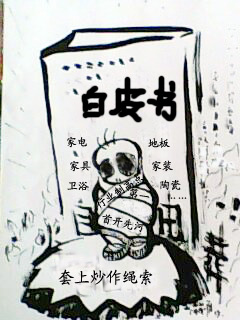 白皮书
家电 地板
家具 家装
卫浴 陶瓷
行业制高点
首开先河
套上炒作绳索